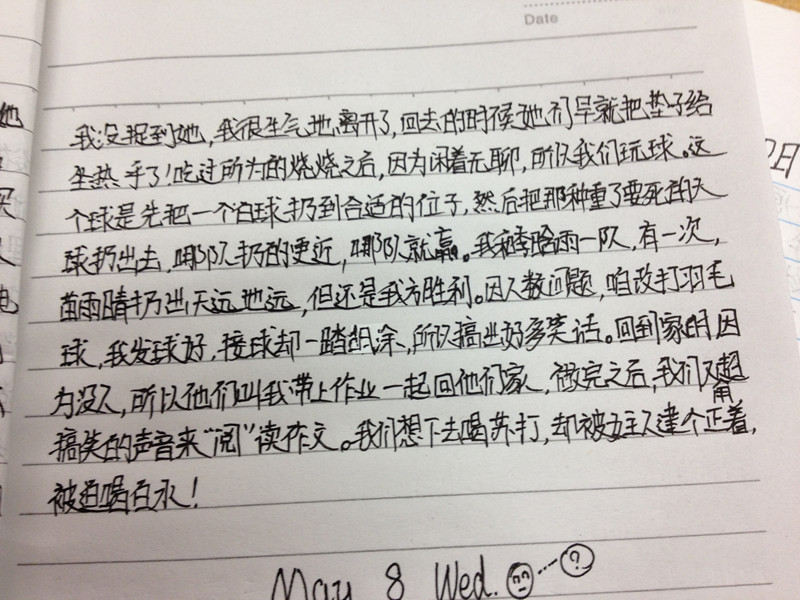 Date
我没捉到她，我很生气地离开了，回去的时候她们早就把垫子给
坐热乎了！吃过所为的烧烧之后，因为闲着无聊，所以我们玩球。这
个球是先把一个白球扔到合适的位子，然后把那种重了要死的大
球扔出去，哪队扔的更近，哪队就赢。我和晗雨一队，有一次，
苗雨晴扔出天远地远，但还是我方胜利。因人数问题，咱改打羽毛
球，我发球好，接球却一踏糊涂，所以搞出好多笑话。回到家时因
为没人，所以他们叫我带上作业一起回他们家，做完之后，我们又用超
搞笑的声音来“阅”读作文。我们想下去喝苏打，却被女主人逮个正着，
被迫喝白水！
May 8 Wed. ?